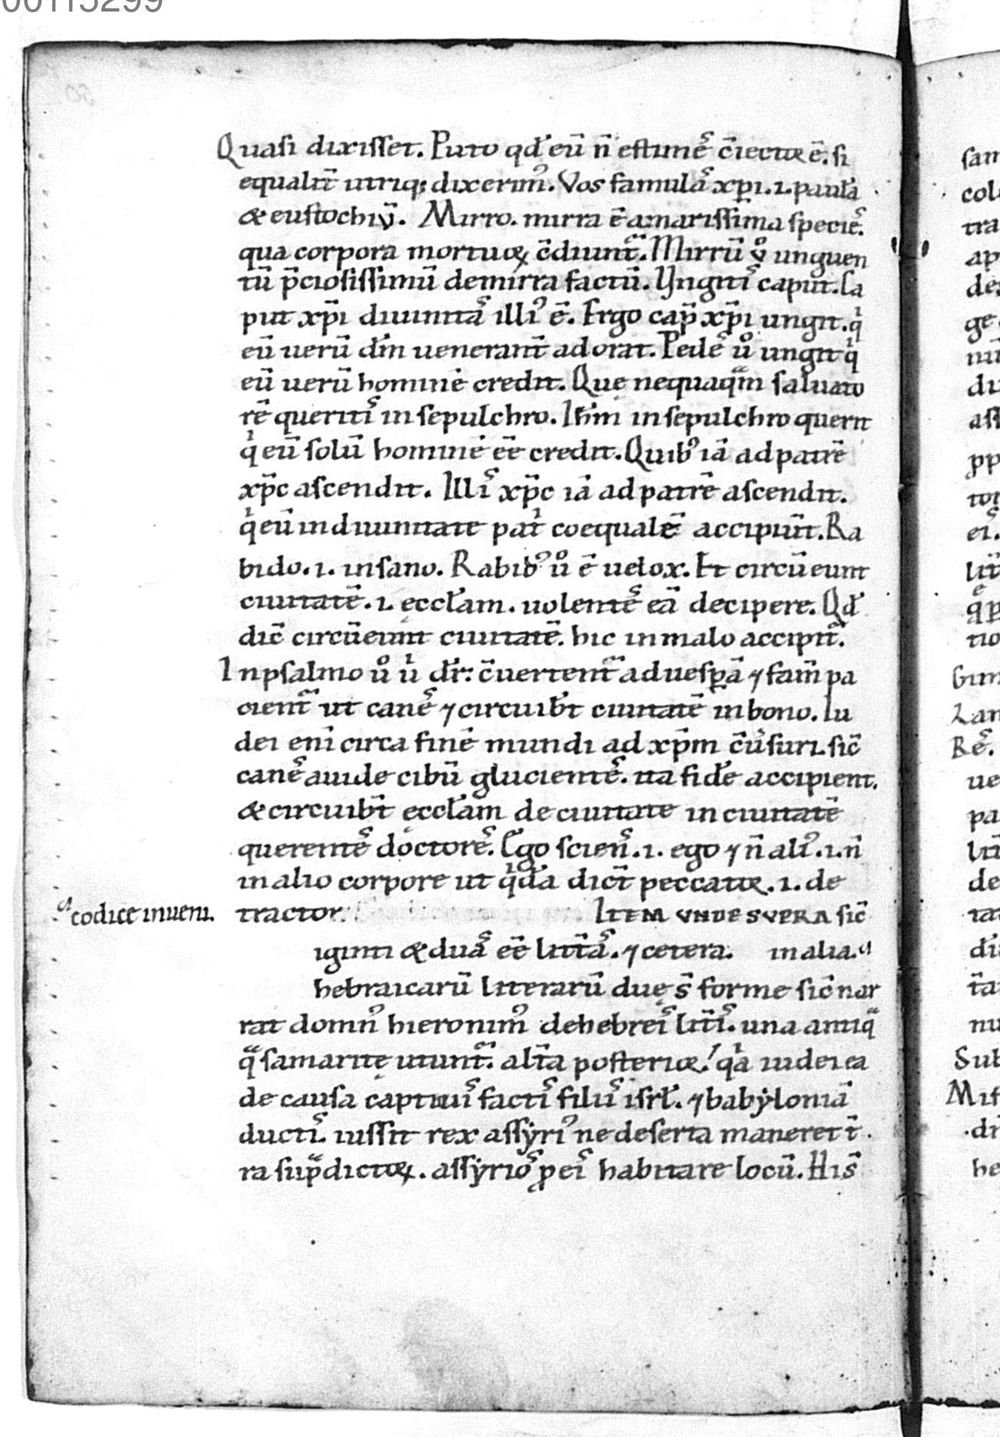 00115299
Quasi dixisset. Puto qđ eū n̄ estimeˀ c̄iectoꝝ ē. si
equalit̄ utriq; dixerimꝰ. Vos famulaˀ xp̄i .i. paulā
& eustochiū. Mirro. mirra ē amarissima specieˀ.
qua corpora mortuoꝝ c̄diunt᷑. Mirrū ů unguen
tū p̄ciosissimū de mirra factū. Ungitiˀ caput. Ca
put xp̄i diuinitaˀ illiꝰ ē. Ergo cap̄ xp̄i ungit. qͥ
eū uerū dm̄ uenerant̄ adorat. Pedeˀ ů ungit qͥ
eū uerū hominē credit. Quę nequaqᷓm saluato
rē queritiˀ in sepulchro. Ihm̄ in sepulchro querit
qͥ eū solū hominē eē credit. Quibꝰ iā ad patrē
xp̄c ascendit. Illiˀ xp̄c iā ad patrē ascendit.
qͥ eū in diuinitate patͥ coequalē accipiūt. Ra
bido .i. insano. Rabidꝰ ů ē uelox. Et circūeunt
ciuitatē .i. ecclam̄. uolenteˀ eā decipere. Qđ
dic̄ circūeunt ciuitatē. hic in malo accipit᷑.
In psalmo ů uͥ dr̄: c̄uertent᷑ ad uesp̄ā ⁊ famē pa
cient᷑ ut caneˀ ⁊ circuibt̄ ciuitatē in bono. Iu
dei eni circa finē mundi ad xp̄m c̄ůsuri. sic̄
caneˀ auide cibū glucienteˀ. ita fidē accipient.
& circuibt̄ ęcclam̄ de ciuitate in ciuitatē
querenteˀ doctoreˀ. Ego scienˀ .i. ego ⁊ n̄ aliꝰ .i. n̄
in alio corpore ut qͥdā dict̄ peccatoꝝ .i. de
codice inueni. tractor. ITEM VNDE SVPRA sic̄
iginti & duaˀ eē litt̄aˀ. ⁊ cetera. in alia.
hebraicarū literarū duę s̄ forme sic̄ nar
rat domnꝰ hieronimꝰ de hebreiˀ litt̄iˀ. una antiqᷓ
qᷓ samaritę utunt᷑. alt̄a posterioꝝ! qͣa iudei ea
de causa captiuiˀ factiˀ filiiˀ isrł. ⁊ babẏloniā
ductiˀ. iussit rex assẏriꝰ ne deserta maneret t̄
ra sup̄dictoꝝ. assẏrioˀ ꝓ eiˀ habitare locū. Hiˀ